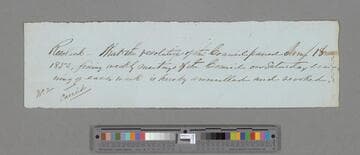 Resolved - That the resolution of the Council passed
1852, fixing weekly meetings of the Council on Saturday even-
ing of each week is hereby annulled and revoked.
No 2